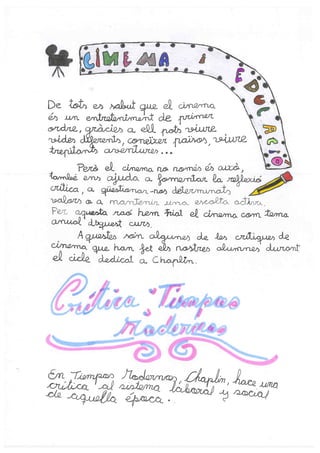 CINEMA i EDUCACIÓ!
De tots es sabut que el cinema
és un entreteniment de primer
ordre, gràcies a ell pots viure
vides diferents, conèixer països, viure
trepitants aventures...
Però el cinema no només és això,
també ens ajuda a fomentar la reflexió
crítica, a qüestionar-nos determinats
valors o a mantenir una escolta activa.
Per aquesta raó hem triat el cinema com tema
anual d'aquest curs.
Aquestes són algunes de les crítiques de
cinema que han fet els nostres alumnes durant
el cicle dedicat a Chaplin.
Crítica "Tiempos
Modernos
En Tiempos Modernos, Chaplin, hace una
crítica al sistema laboral y social
de aquella época.